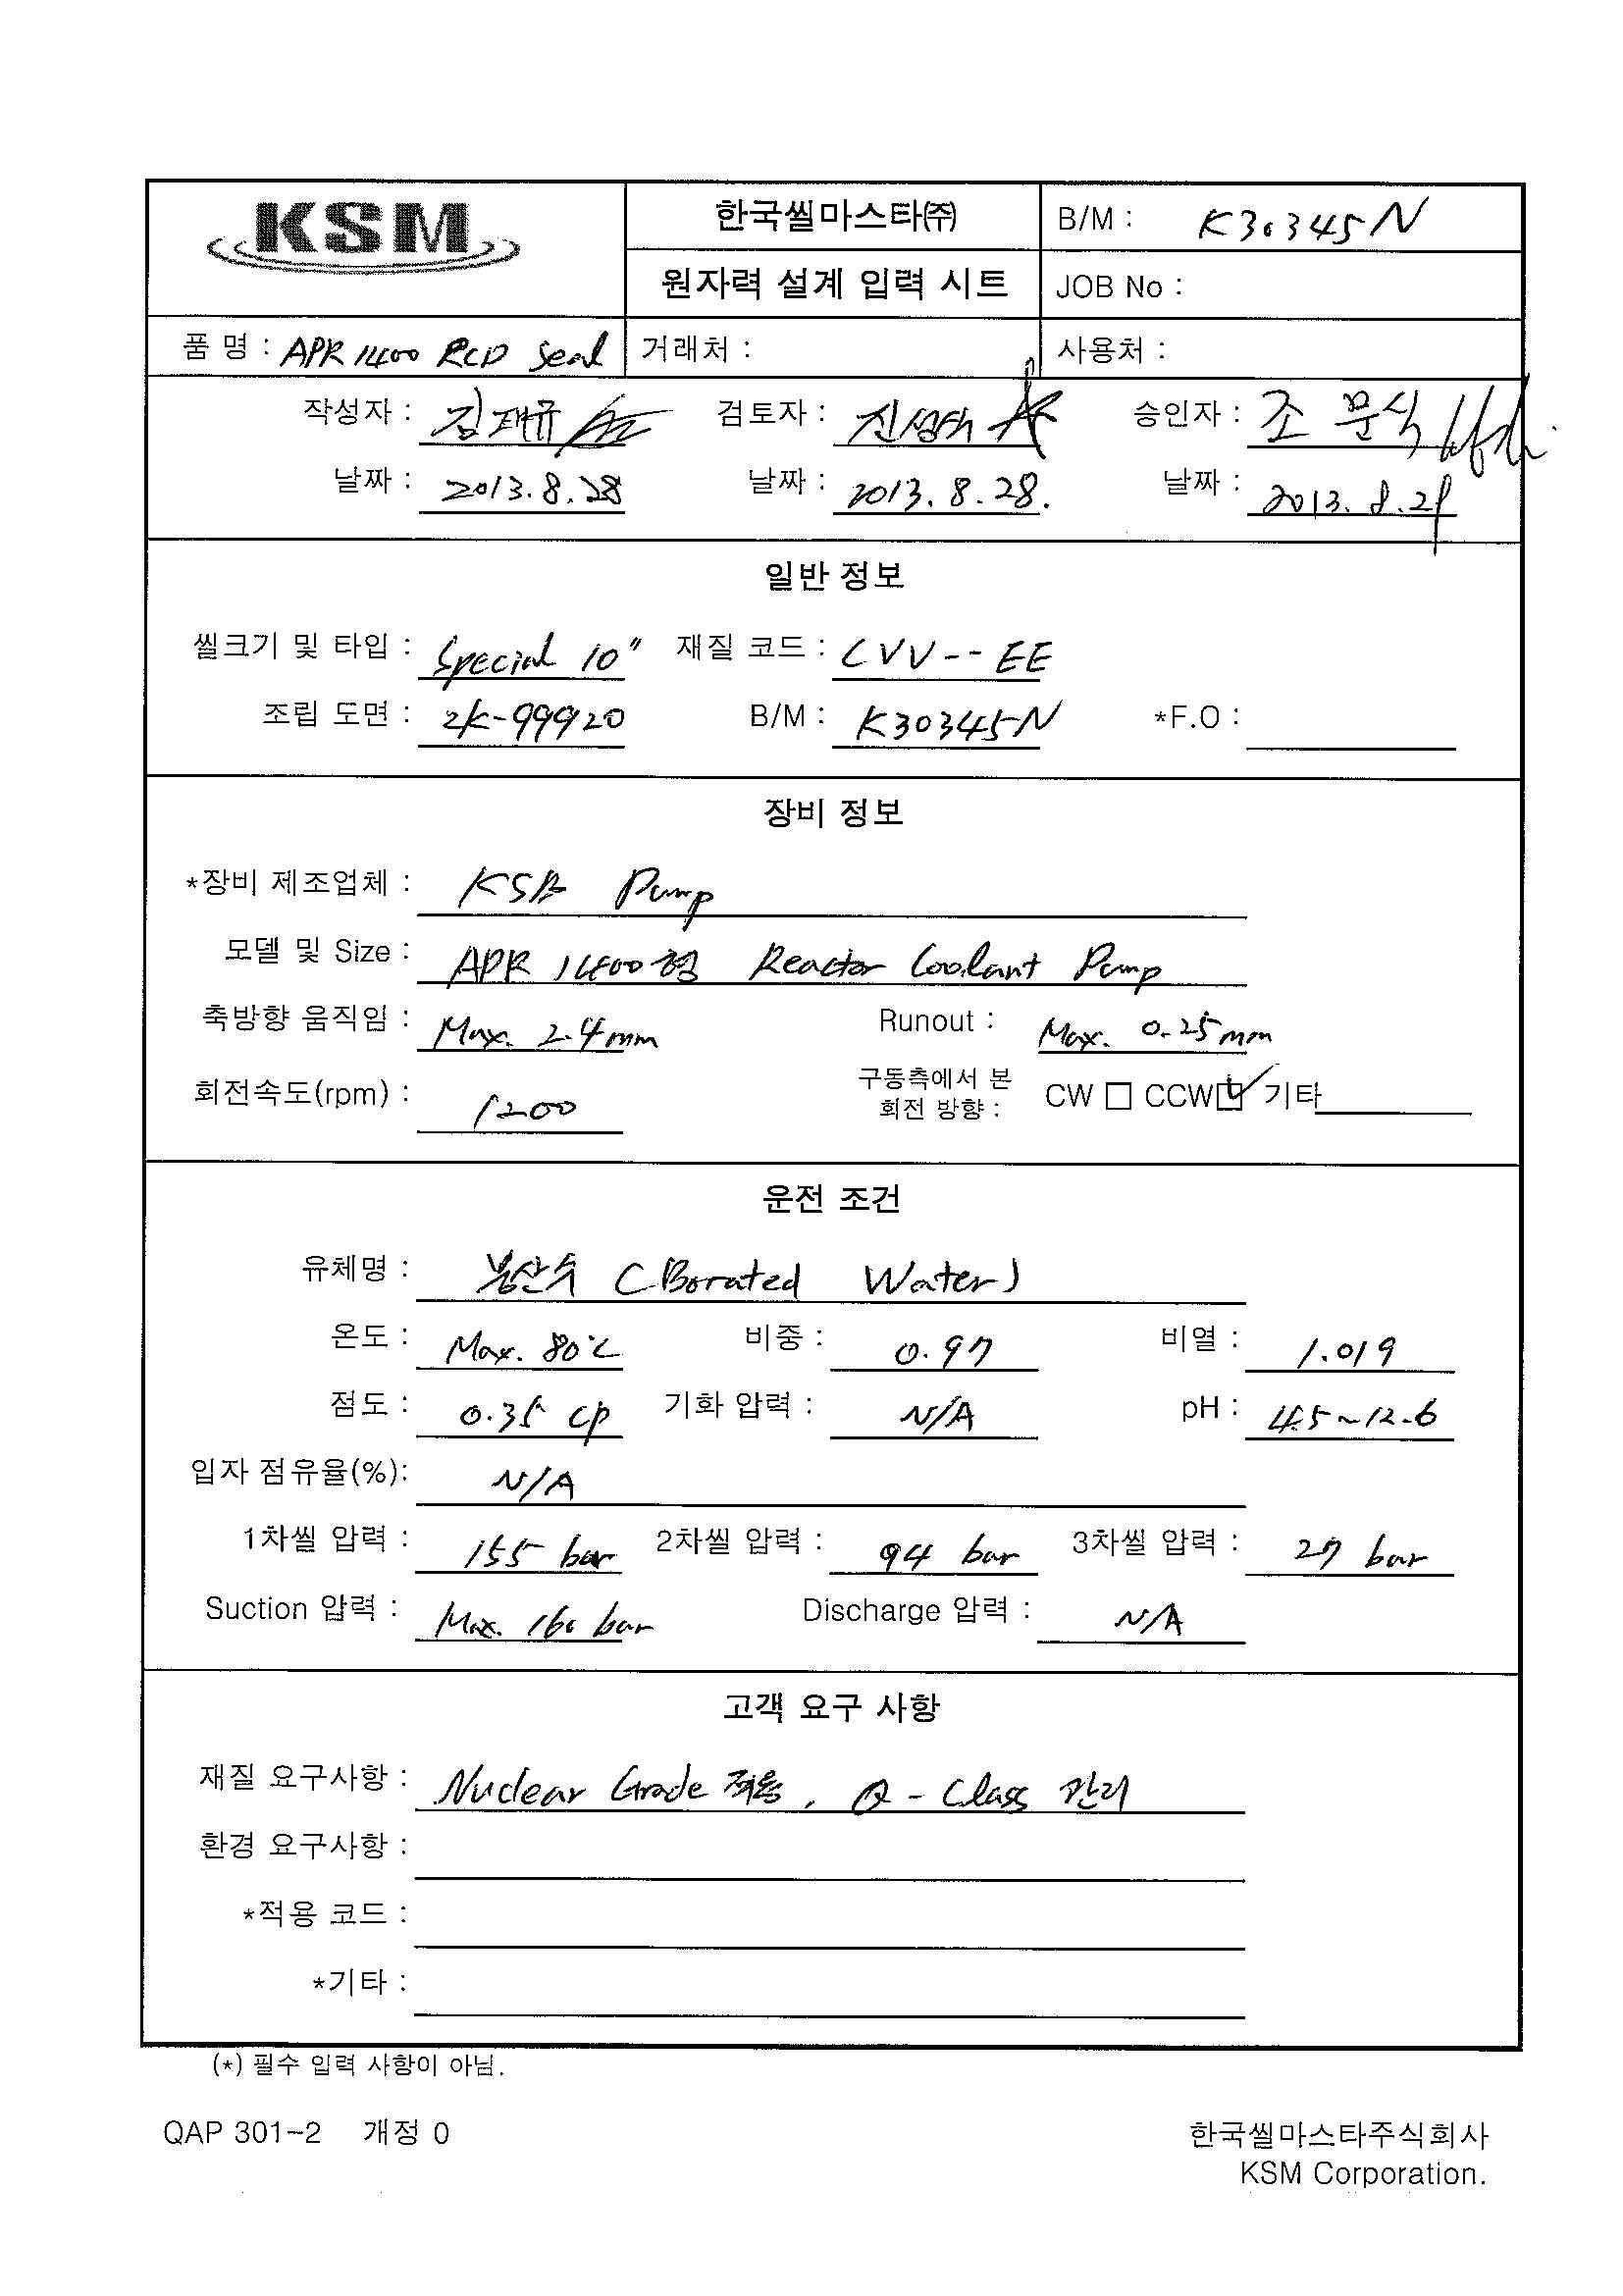 KSM 한국씰마스타㈜ B/M : K30345N
원자력 설계 입력 시트 JOB No :
품 명 : APR 1400 RCP Seal 거래처 : 사용처 :
작성자 : 김재규 검토자 : 진성태 승인자 : 조 문식
날짜 : 2013.8.28 날짜 : 2013.8.28. 날짜 : 2013.8.29
일반 정보
씰크기 및 타입 : Special 10" 재질 코드 : CVV--EE
조립 도면 : 2K-99920 B/M : K30345N *F.O :
장비 정보
*장비 제조업체 : KSB Pump
모델 및 Size : APR 1400형 Reactor Coolant Pump
축방향 움직임 : Max. 2.4mm Runout : Max. 0.25mm
회전속도(rpm) : 1200 구동측에서 본 회전 방향 : CW □ CCW ☑ 기타
운전 조건
유체명 : 붕산수 (Borated Water)
온도 : Max. 80℃ 비중 : 0.97 비열 : 1.019
점도 : 0.35 cp 기화 압력 : N/A pH : 4.5~12.6
입자 점유율(%): N/A
1차씰 압력 : 155 bar 2차씰 압력 : 94 bar 3차씰 압력 : 27 bar
Suction 압력 : Max. 160 bar Discharge 압력 : N/A
고객 요구 사항
재질 요구사항 : Nuclear Grade 적용, Q-Class 관리
환경 요구사항 :
*적용 코드 :
*기타 :
(*) 필수 입력 사항이 아님.
QAP 301-2 개정 0 한국씰마스타주식회사
KSM Corporation.